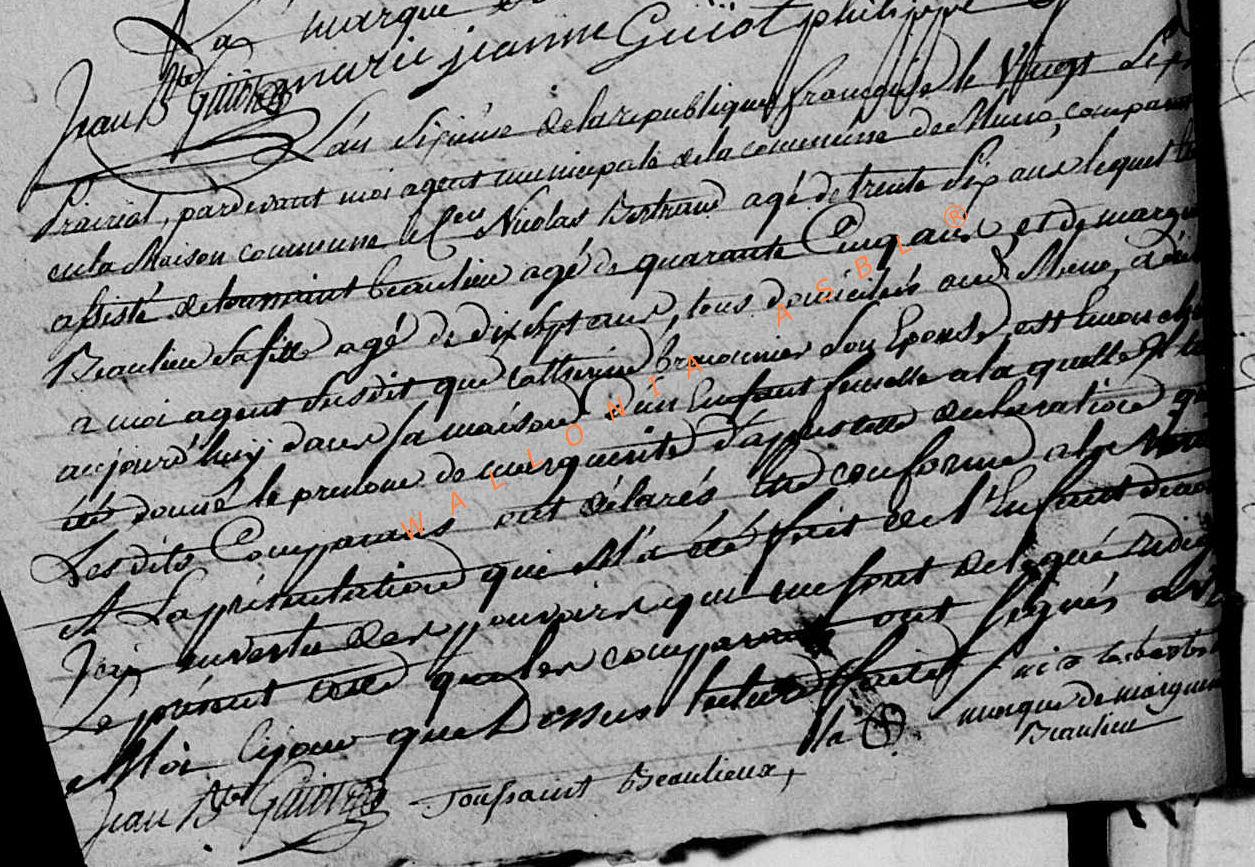 La marque de
marie jeanne Guiot philippe
Jean Bte Guiot
L'an sixieme de la republique francoise le vingt six
Prairial, pardevant moi agent municipale de la commune de Muno, comparut
en la Maison commune le Cen Nicolas Bertrand agé de trente six ans lequel
assisté de toussaint beaulieu agé de quarante Cinq ans, et de marguerite
Beaulieu sa fille agé de dix sept ans, tous domiciliés audt Muno, a
a moi agent susdit que Catherine son Epouse, est
aujourd'huy dans sa maison d'un Enfant femelle a la quelle il
été donné le prenome de marguerite d'apres cette declaration que
Les dits Comparans ont déclarés etre conforme a la
et La présentation qui M'a été fait de l'Enfant
J'ai en vertu des pouvoirs qui me sont delegué
Le présent acte que les comparans ont signés avec
Moi Cejour que Dessus lecture faite
la marque de marguerite
Beaulieu
Jean Bte Guiot toussaint Beaulieux,
WALLONIA ASBL ®